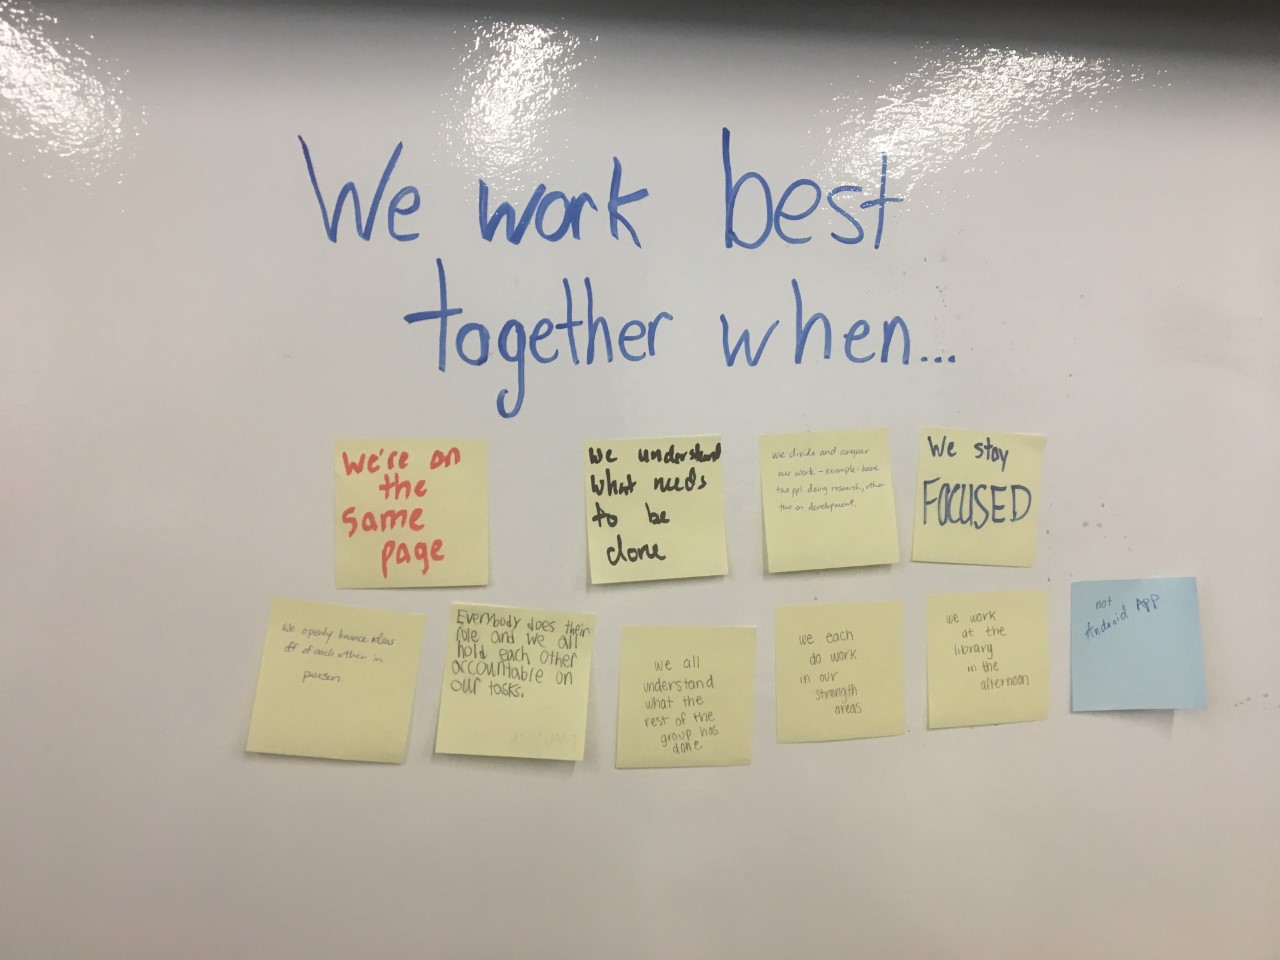 We work best
together when...
We're on
the
same
page
We understand
what needs
to be
done
we divide and conquer
our work - example: have
two ppl doing research, other
two on development.
We stay
FOCUSED
We openly bounce ideas
off of each other in
person
Everybody does their
role and we all
hold each other
accountable on
our tasks.
we all
understand
what the
rest of the
group has
done
we each
do work
in our
strength
areas
we work
at the
library
in the
afternoon
not
Android App